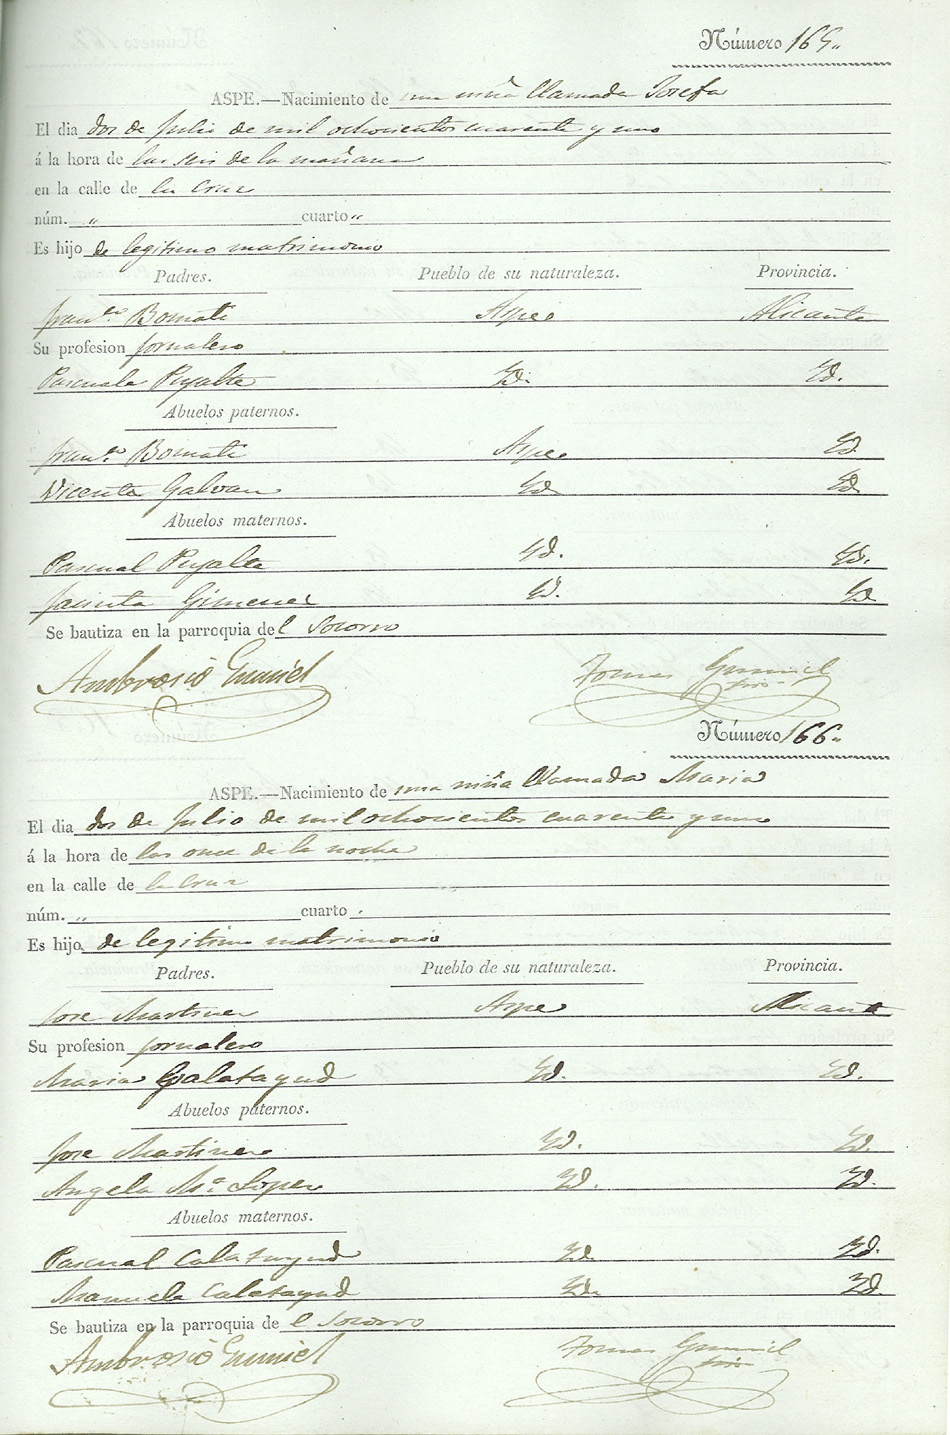 Número 165..
ASPE.—Nacimiento de una niña llamada Josefa
El dia dos de Julio de mil ochocientos cuarenta y uno
á la hora de las seis de la mañana
en la calle de la Cruz
núm. " cuarto "
Es hijo de legitimo matrimonio
Padres. Pueblo de su naturaleza. Provincia.
Franco. Bomati Aspe Alicante
Su profesion jornalero
Pascuala Pujalte Yd. Yd.
Abuelos paternos.
Franco. Bomati Aspe Yd
Vicenta Galvan Yd Yd
Abuelos maternos.
Pascual Pujalte Yd. Yd.
Jacinta Gimenez Yd. Yd
Se bautiza en la parroquia del Socorro
Ambrosio Tomas
Número 166..
ASPE.—Nacimiento de una niña llamada Maria
El dia dos de Julio de mil ochocientos cuarenta y uno
á la hora de las once de la noche
en la calle de la Cruz
núm. " cuarto .
Es hijo de legitimo matrimonio
Padres. Pueblo de su naturaleza. Provincia.
Jose Martinez Aspe Alicante
Su profesion jornalero
Maria Calatayud Yd. Yd.
Abuelos paternos.
Jose Martinez Yd. Yd.
Angela Ma. Lopez Yd. Yd.
Abuelos maternos.
Pascual Calatayud Yd. Yd.
Manuela Calatayud Yd. Yd.
Se bautiza en la parroquia de el Socorro
Ambrosio Tomas